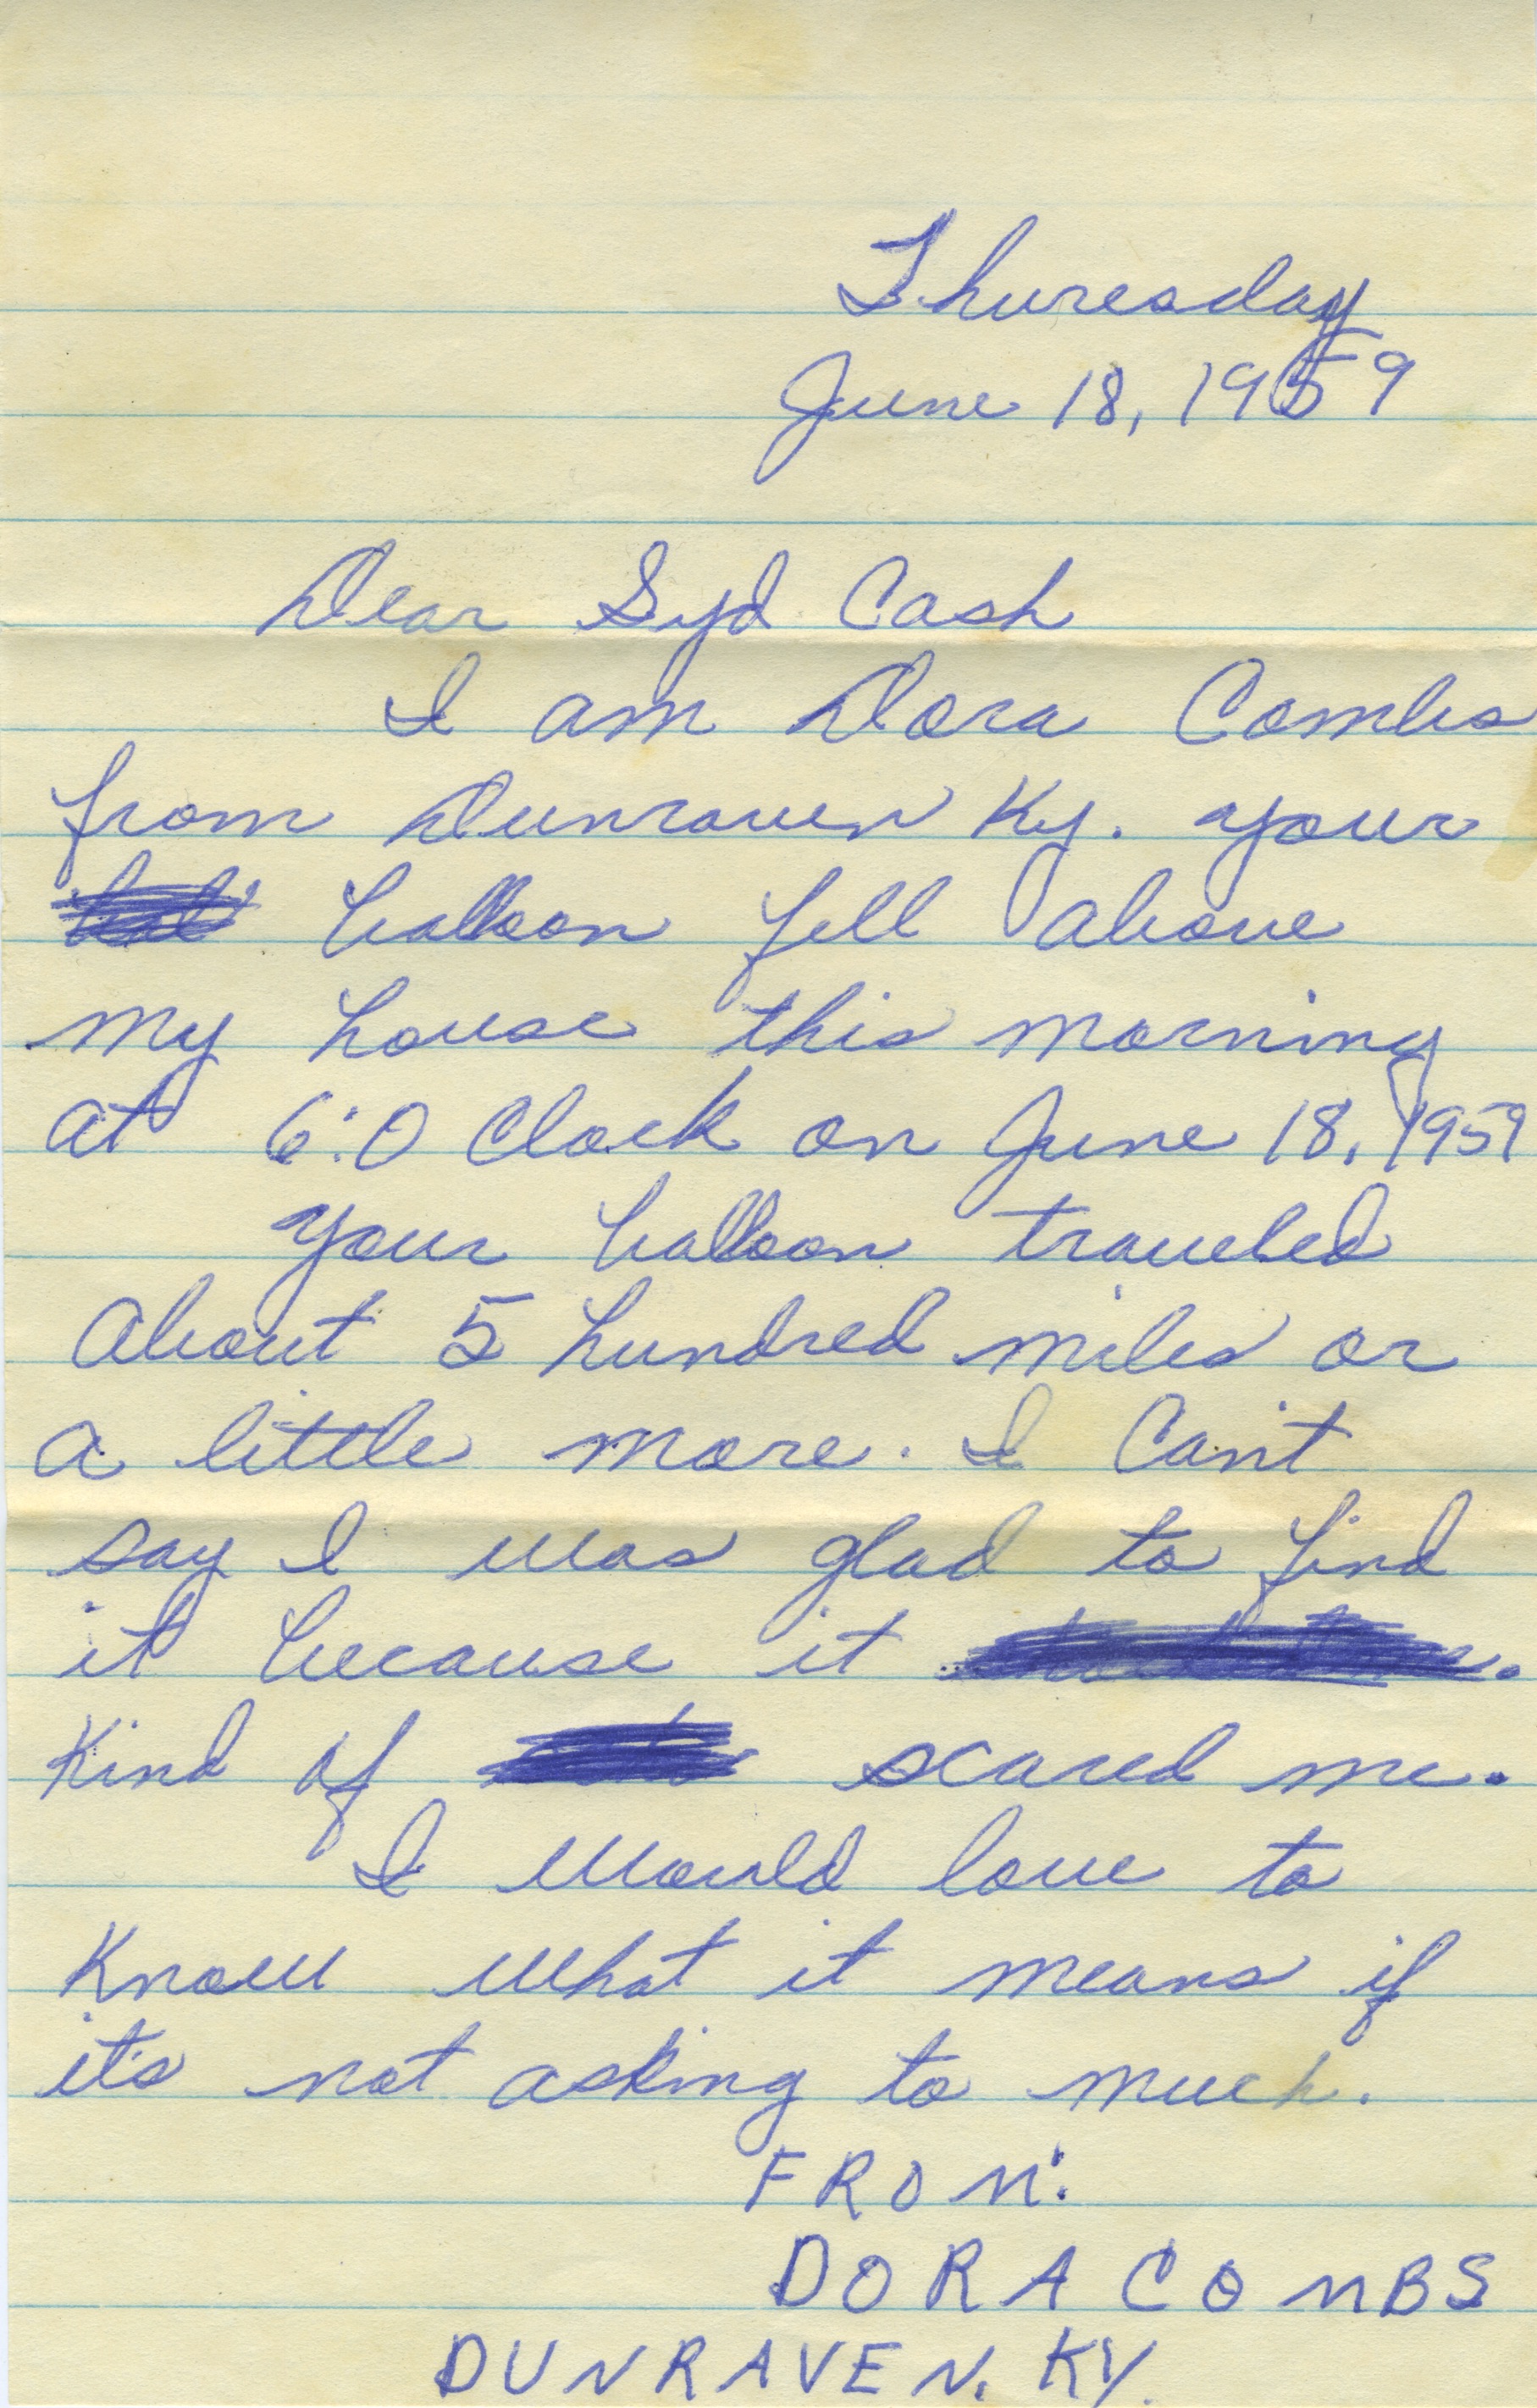 Thuresday
June 18, 1959
Dear Syd Cash
I am Dora Combs
from Dunraven Ky. your
balloon fell above
my house this morning
at 6:0 Clock on June 18, 1959
your balloon traveled
about 5 hundred miles or
a little more. I Can't
say I was glad to find
it because it .
Kind of scared me.
I would love to
Know what it means if
it's not asking to much.
FROM:
DORA COMBS
DUNRAVEN. KY.